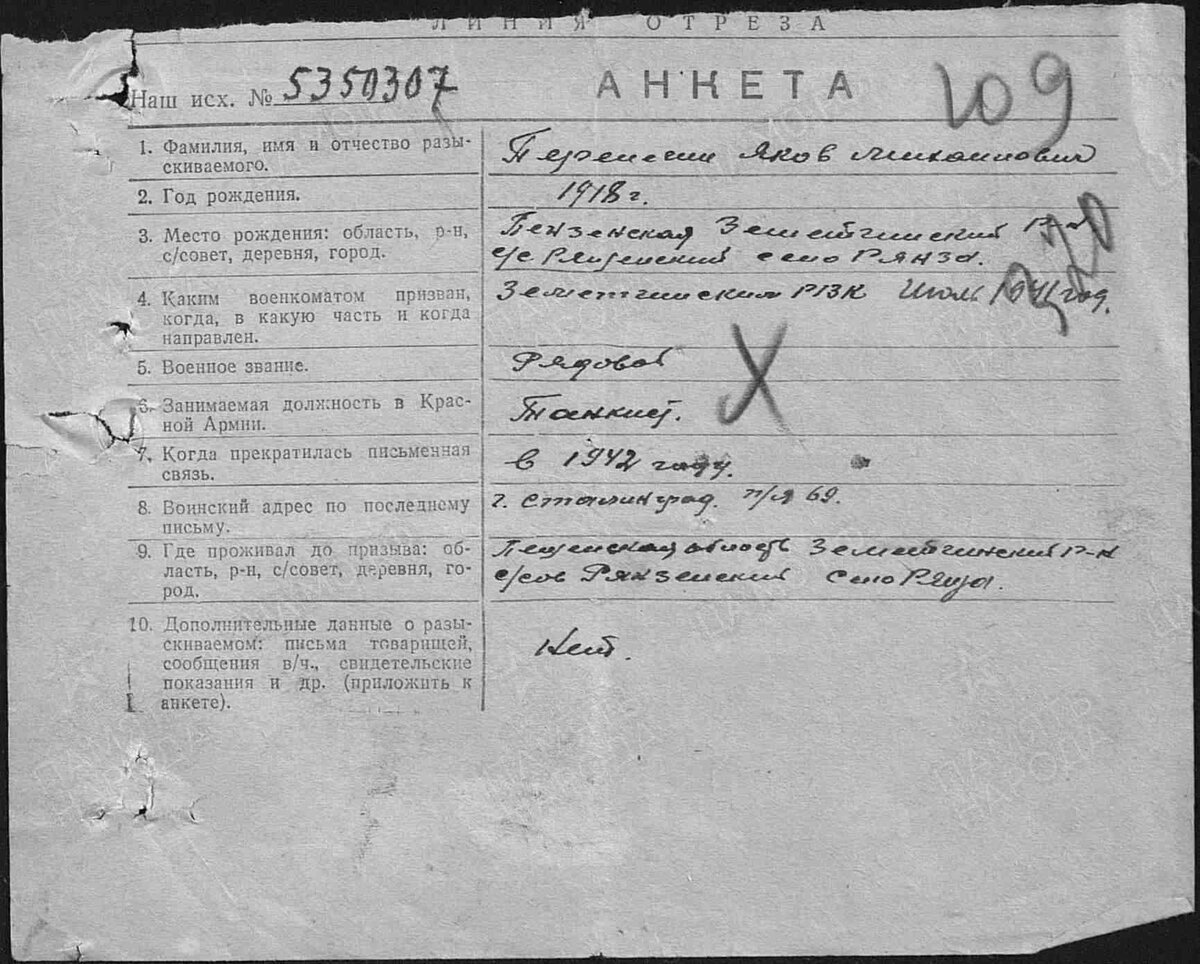 ЛИНИЯ ОТРЕЗА
Наш исх. № 5350307
АНКЕТА
109
1. Фамилия, имя и отчество разы-
скиваемого.
Яков Михаилович
2. Год рождения.
1918 г.
3. Место рождения: область, р-н,
с/совет, деревня, город.
Пензенская Земетчинский Р-н
с/с село Рянза.
4. Каким военкоматом призван,
когда, в какую часть и когда
направлен.
Земетчинским РВК Июль 1941 год.
5. Военное звание.
Рядовой
6. Занимаемая должность в Крас-
ной Армии.
Танкист.
7. Когда прекратилась письменная
связь.
в 1942 году.
8. Воинский адрес по последнему
письму.
г. Сталинград. п/я 69.
9. Где проживал до призыва: об-
ласть, р-н, с/совет, деревня, го-
род.
Пензенская область Земетчинский Р-н
с/сов Рянзенский село Рянза.
10. Дополнительные данные о разы-
скиваемом: письма товарищей,
сообщения в/ч., свидетельские
показания и др. (приложить к
анкете).
Нет.